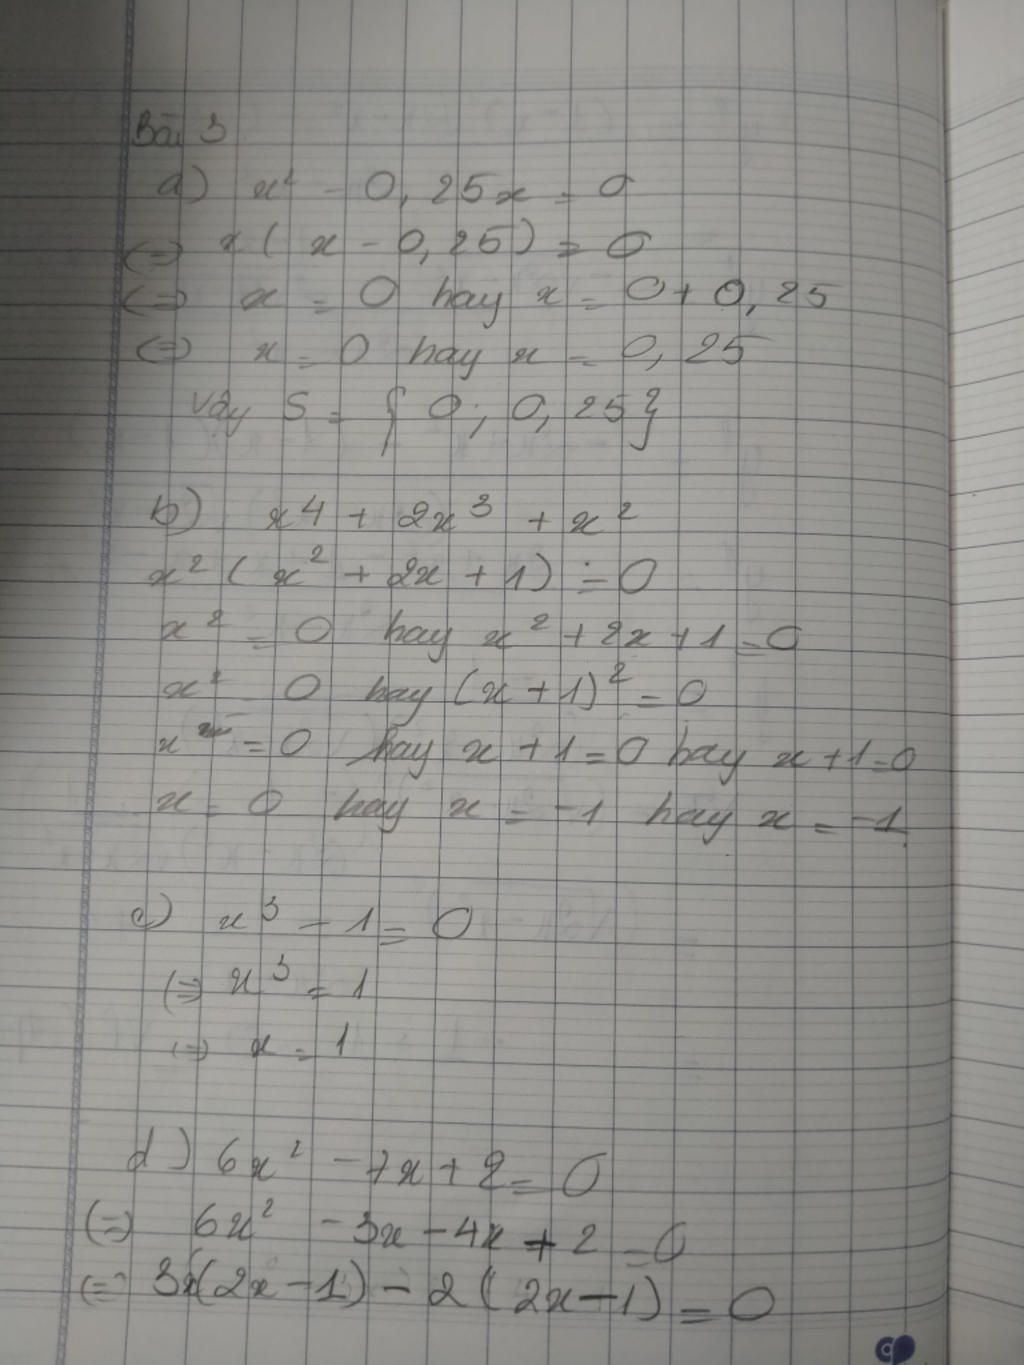 Bài 3
a) x² - 0,25x = 0
(=) x( x - 0,25) = 0
(=) x = 0 hay x = 0 + 0,25
(=) x = 0 hay x = 0,25
Vậy S = { 0 ; 0,25}
b) x⁴ + 2x³ + x²
x² ( x² + 2x + 1) = 0
x² = 0 hay x² + 2x + 1 = 0
x² = 0 hay (x + 1)² = 0
x = 0 hay x + 1 = 0 hay x + 1 = 0
x = 0 hay x = -1 hay x = -1
c) x³ - 1 = 0
(=) x³ = 1
(=) x = 1
d) 6x² - 7x + 2 = 0
(=) 6x² - 3x - 4x + 2 = 0
(=) 3x(2x - 1) - 2 ( 2x - 1) = 0